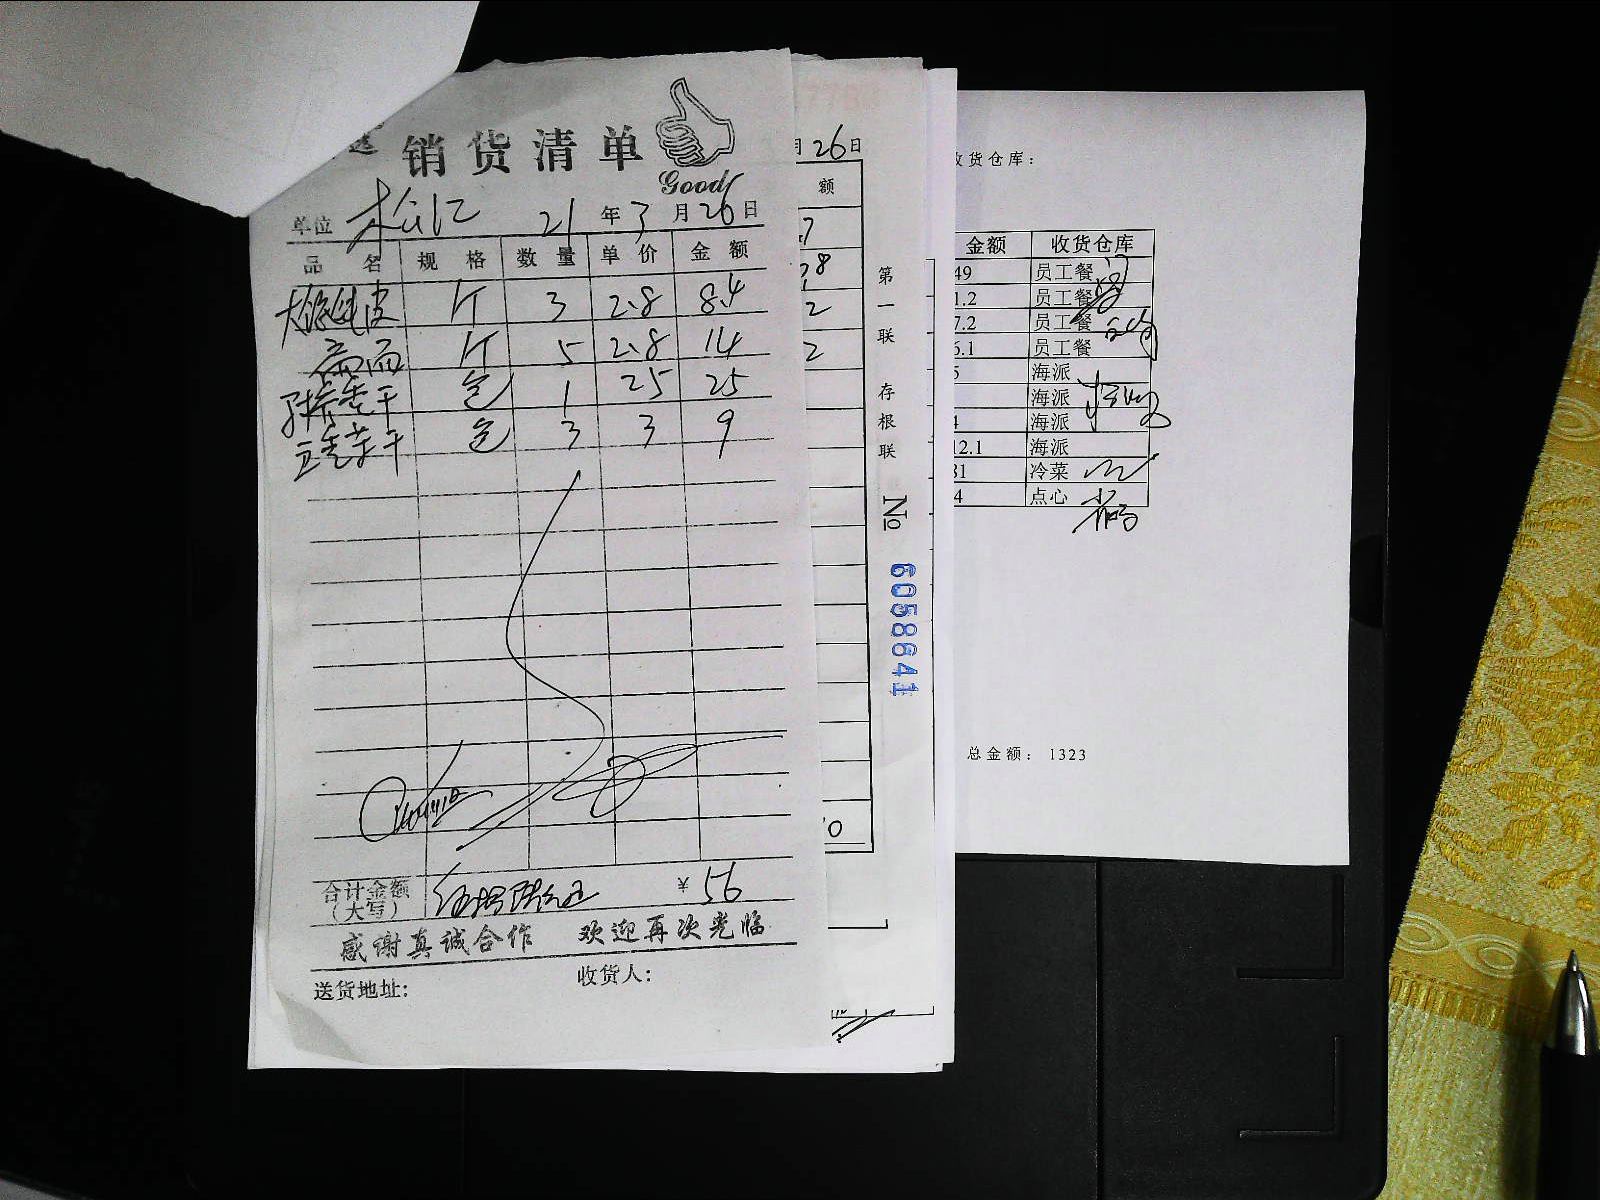 销货清单
Good
单位 松江 21 年 3 月 26 日
品名 规格 数量 单价 金额
大馄饨皮 斤 3 2.8 8.4
面 斤 5 2.8 14
香干 包 1 25 25
干 包 3 3 9
合计金额 ¥ 56
(大写)
感谢真诚合作 欢迎再次光临
收货人:
送货地址:
月 26 日
额
第一联 存根联
№ 6058641
收货仓库:
金额 收货仓库
49 员工餐
1.2 员工餐
7.2 员工餐
6.1 员工餐
5 海派
海派
4 海派
12.1 海派
31 冷菜
4 点心
总金额: 1323